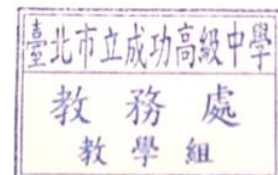 臺北市立成功高級中學
教務處
教學組